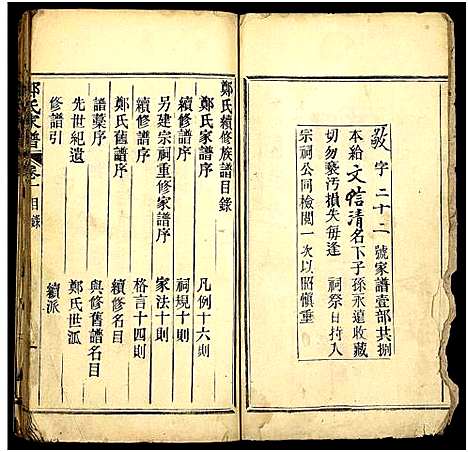 敬字二十二號家譜壹部共捌
本給文信清名下子孫永遠收藏
切勿褻汚損失每逢 祠祭日持入
宗祠公同檢閱一次以昭慎重
鄭氏續修族譜目錄
鄭氏家譜序 凡例十六則
續修譜序 祠規十則
另建宗祠重修家譜序 家法十則
續修譜序 格言十四則
鄭氏舊譜序 續修名目
譜藁序 與修舊譜名目
先世紀遺 鄭氏世派
修譜引 續派
鄭氏家譜 卷一 目錄